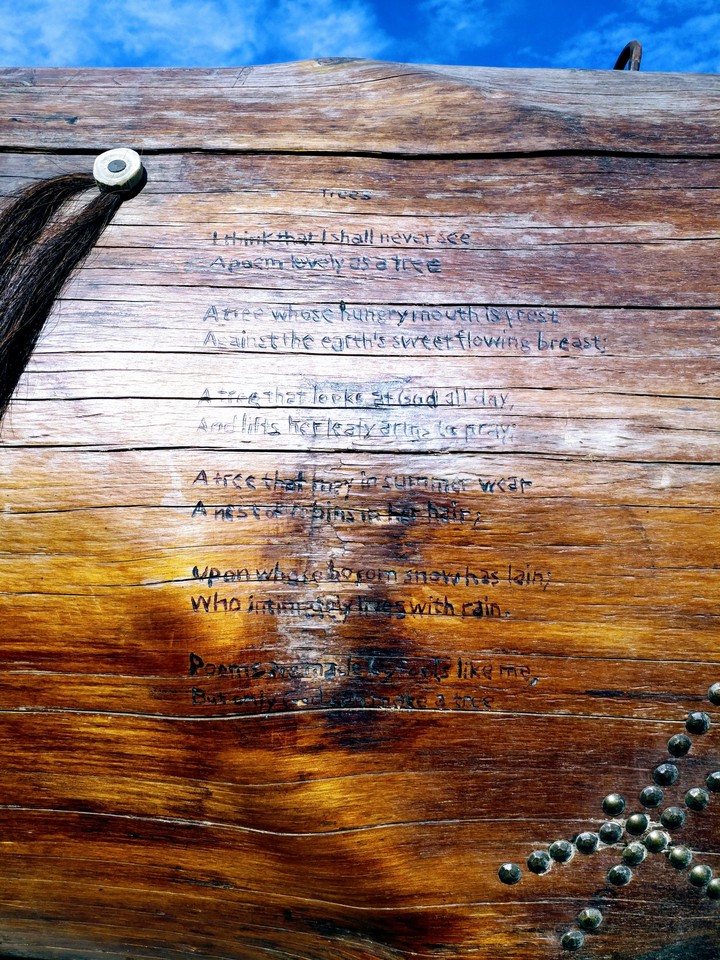 Trees
I think that I shall never see
A poem lovely as a tree
A tree whose hungry mouth is prest
Against the earth's sweet flowing breast;
A tree that looks at God all day,
And lifts her leafy arms to pray;
A tree that may in summer wear
A nest of robins in her hair;
Upon whose bosom snow has lain;
Who intimately lives with rain.
Poems are made by fools like me,
But only God can make a tree